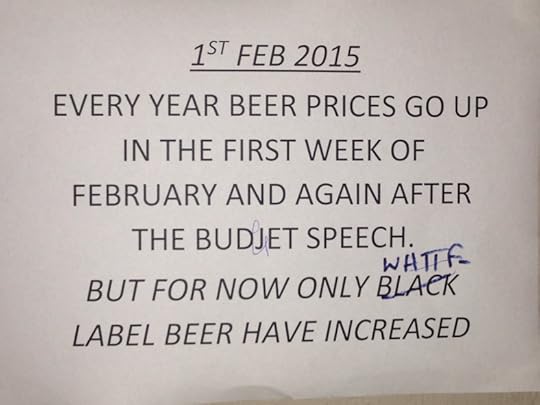 1ST FEB 2015
EVERY YEAR BEER PRICES GO UP
IN THE FIRST WEEK OF
FEBRUARY AND AGAIN AFTER
THE BUDJET SPEECH.
WHITE
BUT FOR NOW ONLY BLACK
LABEL BEER HAVE INCREASED